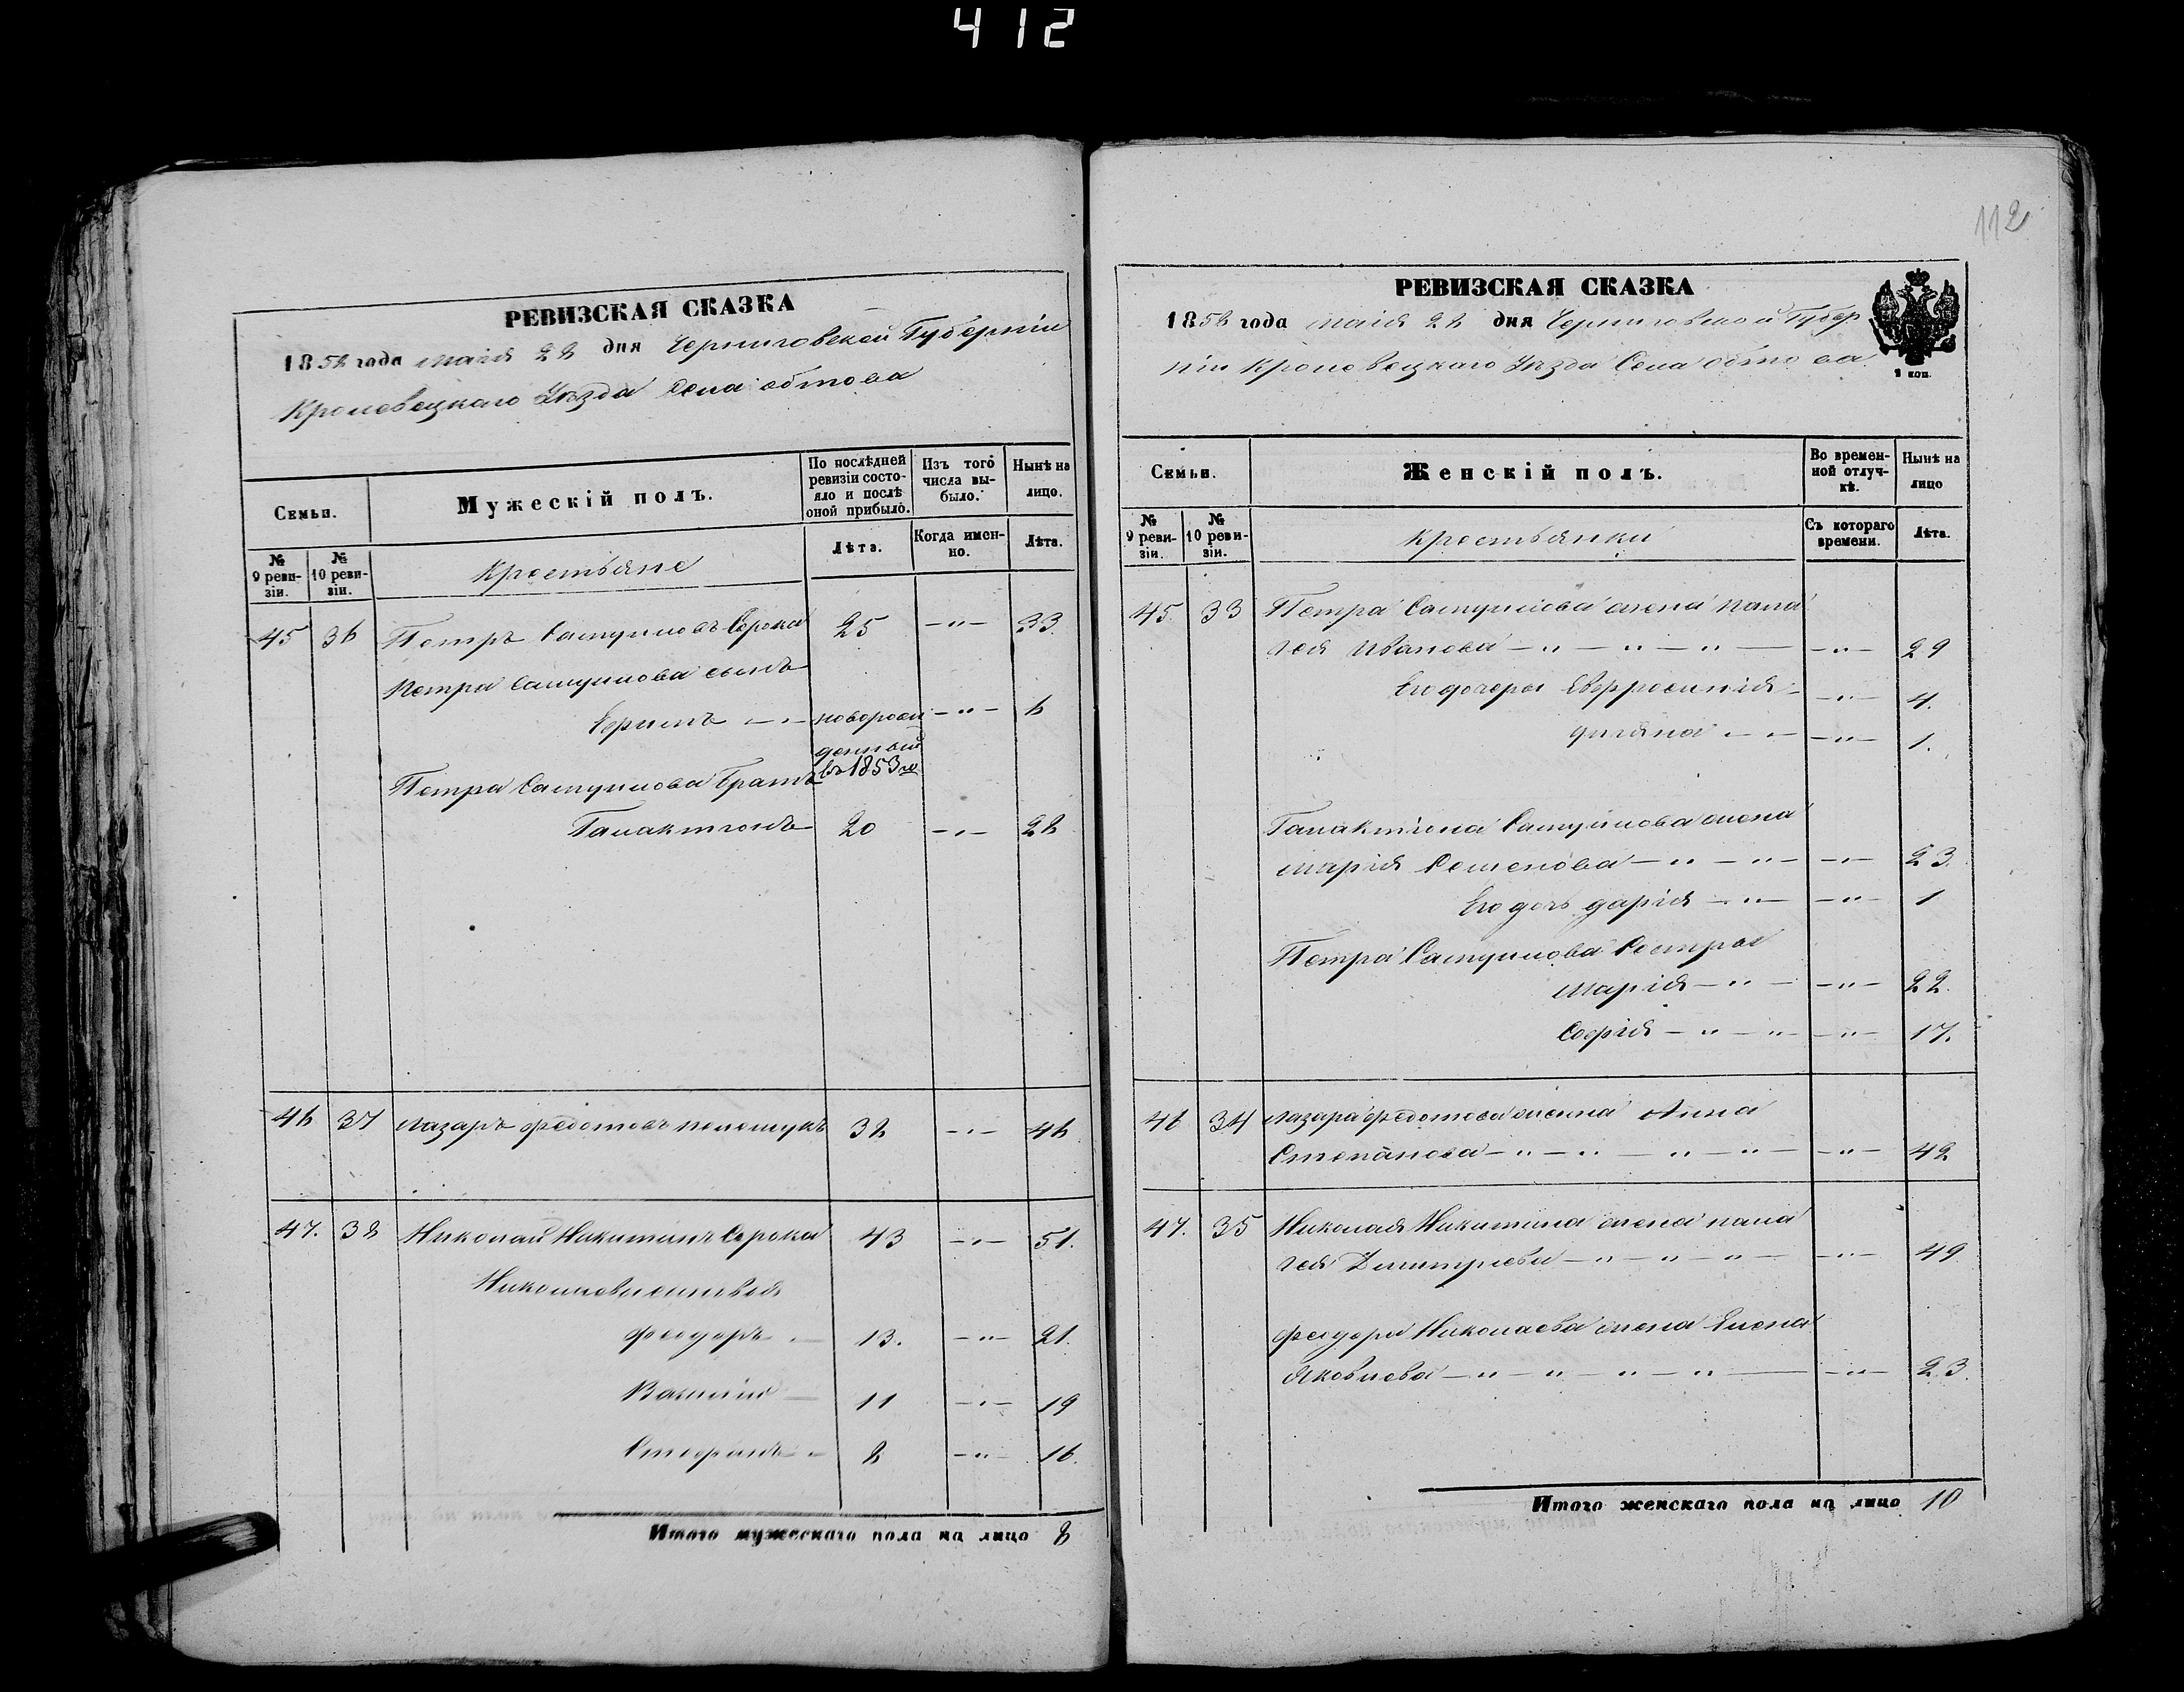 412
РЕВИЗСКАЯ СКАЗКА
1858 года маія 28 дня Черниговской Губерніи
Кролевецкаго Уѣзда Села обтова
Семьи.
Мужескій полъ.
По послѣдней ревизіи состояло и послѣ оной прибыло.
Изъ того числа выбыло.
Нынѣ на лицо.
№ 9 ревизіи.
№ 10 ревизіи.
Крестьяне
Лѣта.
Когда именно.
Лѣта.
45 36 Петръ Самуиловъ Сорока 25 —"— 33.
Петра Самуилова сынъ
Ефимъ — — новорожденный въ 1853 го —"— 6
Петра Самуилова Братъ
Галактіонъ 20 —"— 28
46 37 Лазаръ Федотовъ 38 —"— 46
47. 38 Николай Никитинъ Сорока 43 —"— 51.
Николаевы сыновья
Феодоръ — 13. —"— 21.
Василій — 11 —"— 19
Стефанъ " 8 —"— 16.
Итого мужескаго пола на лицо 8
112
РЕВИЗСКАЯ СКАЗКА
1858 года маія 28 дня Черниговской Губер
ніи Кролевецкаго Уѣзда Села обтова
2 коп.
Семьи.
Женскій полъ.
Во временной отлучкѣ.
Нынѣ на лицо
№ 9 ревизіи.
№ 10 ревизіи.
Крестьянки
Съ котораго времени.
Лѣта.
45. 33 Петра Самуилова жена Пала
гея Иванова — " — " — " — —"— 29
Его дочеры Евфросинія — —"— 4.
— — —"— 1.
Галактіона Самуилова жена
Марія Семенова — " — " — —"— 23.
Его дочь Дарія — " — —"— 1
Петра Самуилова Сестры
Марія — " — —"— 22.
Софія — " — " — —"— 17.
46 34 Лазара Федотова жена Анна
Степанова — " — " — " — " — —"— 42
47. 35 Николая Никитина жена Пала
гея Димитріева — " — " — " — —"— 49
Феодора Николаева жена Елена
Яковлева — " — " — " — " — —"— 23.
Итого женскаго пола на лицо 10